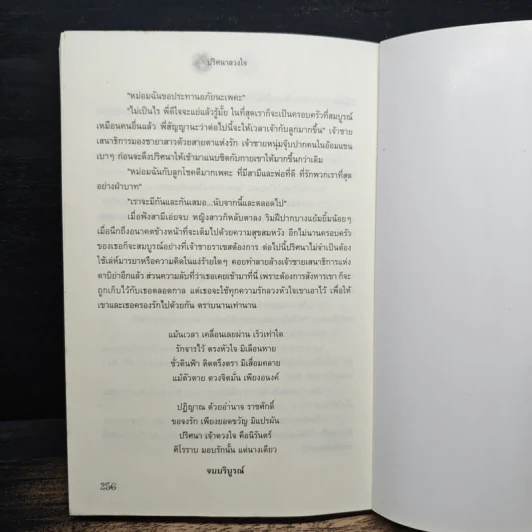 ปริศนาลวงใจ
"หม่อมฉันขอประทานอภัยนะเพคะ"
"ไม่เป็นไร พี่ดีใจจะแย่แล้วรู้มั้ย ในที่สุดเราก็จะเป็นครอบครัวที่สมบูรณ์
เหมือนคนอื่นแล้ว พี่สัญญานะว่าต่อไปนี้จะให้เวลาเจ้ากับลูกมากขึ้น" เจ้าชาย
เสนาธิการมองชายาสาวด้วยสายตาแห่งรัก เจ้าชายหนุ่มจุ๊บปากคนในอ้อมแขน
เบาๆ ก่อนจะดึงปริศนาให้เข้ามาแนบชิดกับกายเขาให้มากขึ้นกว่าเดิม
"หม่อมฉันกับลูกโชคดีมากเพคะ ที่มีสามีและพ่อที่ดี ที่รักพวกเราที่สุด
อย่างฝ่าบาท"
"เราจะมีกันและกันเสมอ...นับจากนี้และตลอดไป"
เมื่อฟังสามีเอ่ยจบ หญิงสาวก็หลับตาลง ริมฝีปากบางแย้มยิ้มน้อยๆ
เมื่อนึกถึงอนาคตข้างหน้าที่จะเต็มไปด้วยความสุขสมหวัง อีกไม่นานครอบครัว
ของเธอก็จะสมบูรณ์อย่างที่เจ้าชายราเชสต้องการ ต่อไปนี้ปริศนาไม่จำเป็นต้อง
ใช้เล่ห์มารยาหรือความคิดในแง่ร้ายใดๆ คอยทำลายล้างเจ้าชายเสนาธิการแห่ง
ดาบิย่าอีกแล้ว ส่วนความลับที่ว่าเธอเคยเข้ามาที่นี่ เพราะต้องการสังหารเขา ก็จะ
ถูกเก็บไว้กับเธอตลอดกาล แต่เธอจะใช้ทุกความรักลวงหัวใจเขาเอาไว้ เพื่อให้
เขาและเธอครองรักไปด้วยกัน ตราบนานเท่านาน
แม้นเวลา เคลื่อนเลยผ่าน เร็วเท่าใด
รักจารไว้ ตรงหัวใจ มิเลือนหาย
ชั่วดินฟ้า ติดตรึงตรา มิเสื่อมคลาย
แม้ตัวตาย ดวงจิตมั่น เพียงอนงค์
ปฏิญาณ ด้วยอำนาจ ราชศักดิ์
ขอจงรัก เพียงยอดขวัญ มิแปรผัน
ปริศนา เจ้าดวงใจ คือนิรันดร์
ศิโรราบ มอบรักนั้น แด่นางเดียว
จบบริบูรณ์
256